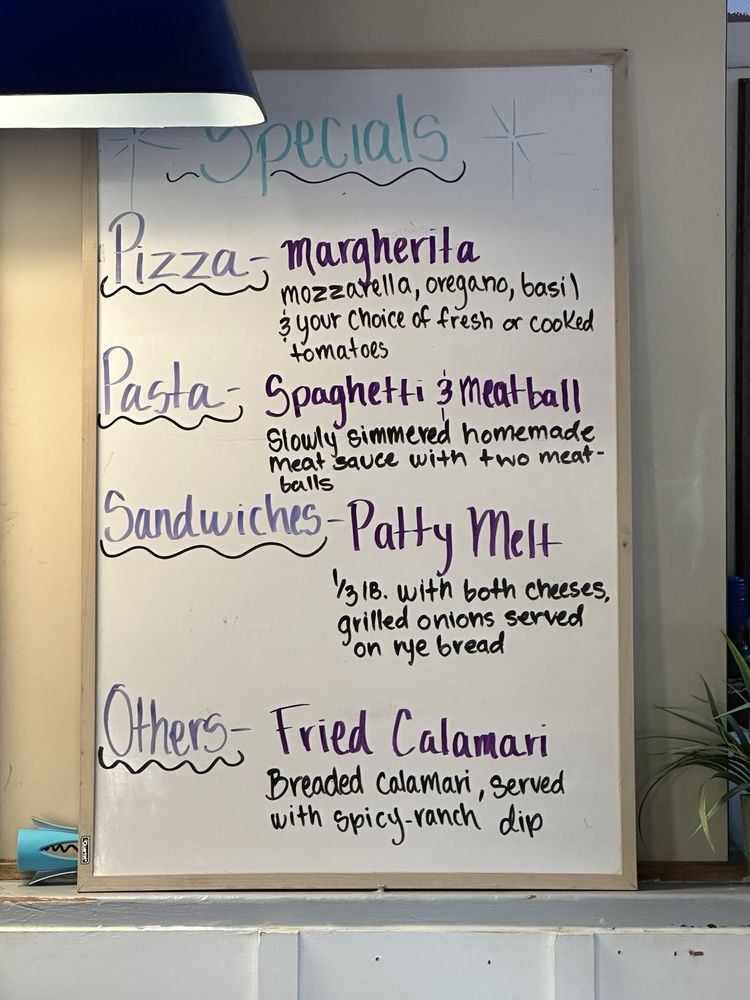 Specials
Pizza- Margherita
mozzarella, oregano, basil
& your choice of fresh or cooked
tomatoes
Pasta- Spaghetti & Meatball
Slowly simmered homemade
meat sauce with two meat-
balls
Sandwiches- Patty Melt
1/3 lb. with both cheeses,
grilled onions served
on rye bread
Others- Fried Calamari
Breaded calamari, served
with spicy-ranch dip